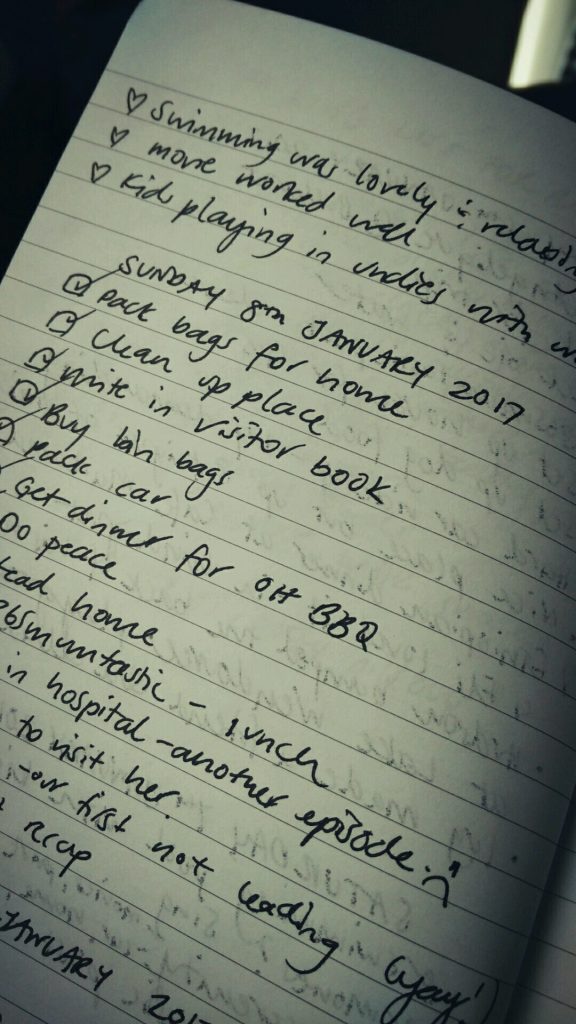 ♡ Swimming was lovely & relaxing
♡ movie worked well
♡ Kids playing in undies with
SUNDAY 8TH JANUARY 2017
☑ Pack bags for home
☑ Clean up place
☑ Write in visitor book
☑ Buy bin bags
☑ Pack car
Get dinner for OH BBQ
Do peace
home
lunch
in hospital - another episode :(
to visit her
- our first not leading (yay!)
recap
JANUARY 2017